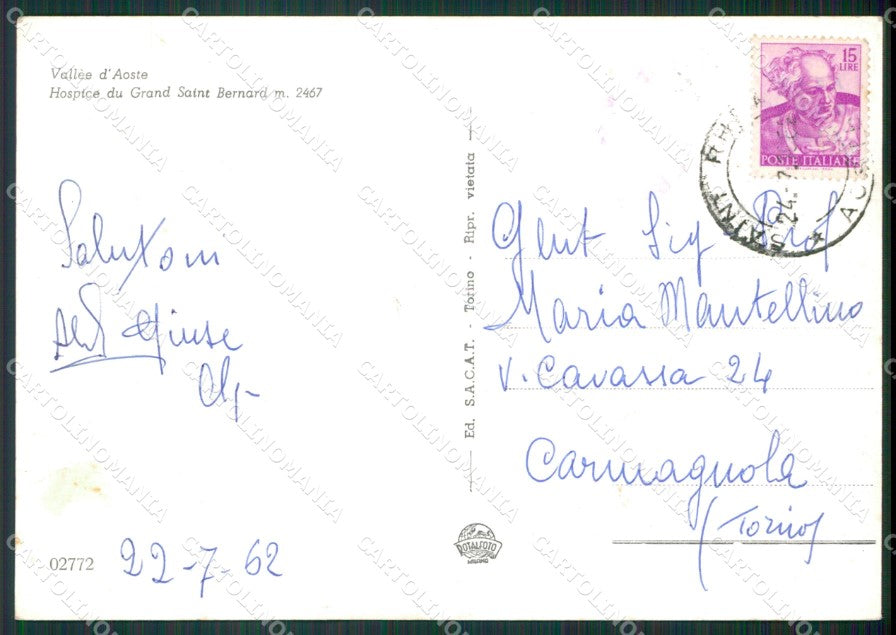 Vallée d'Aoste
Hospice du Grand Saint Bernard m. 2467
15
LIRE
POSTE ITALIANE
SAINT RH
Saluton
Giuse
Gent Sig Prof
Maria Mantellino
V. Cavassa 24
Carmagnola
(Torino)
Ed. S.A.C.A.T. - Torino - Ripr. vietata
ROTALFOTO
MILANO
02772
22-7-62
CARTOLINOMANIA